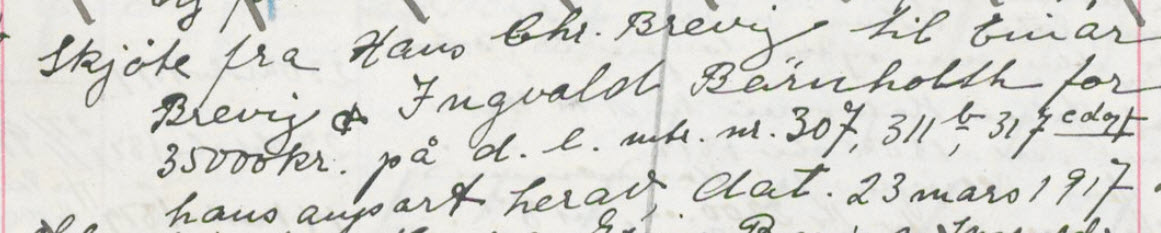 Skjøte fra Hans Chr. Brevig til Einar
Brevig & Ingvald Bärnholth for
35000 kr. på d. l. mtr. nr. 307, 311 b, 317 cdogf
hans anpart herav, dat. 23 mars 1917.